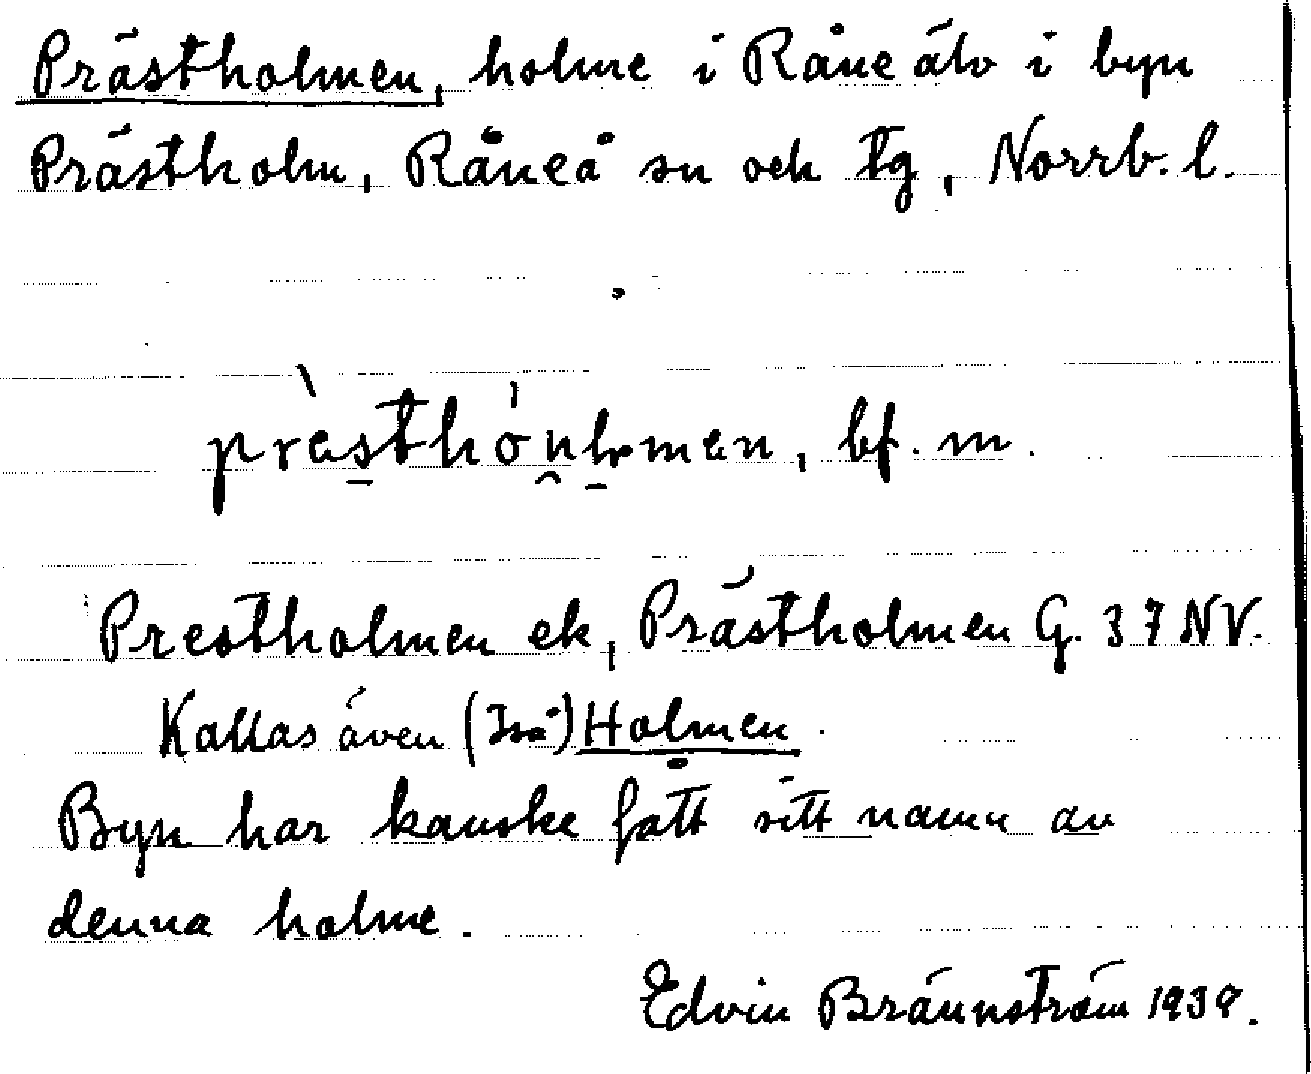 Prästholmen, holme i Råne älv i byn
Prästholm, Råneå sn och tg, Norrb. l.
bf. m.
Prestholmen ek, Prästholmen G. 37 NV.
Kallas även Holmen.
Byn har kanske fått sitt namn av
denna holme.
Edvin Brännström